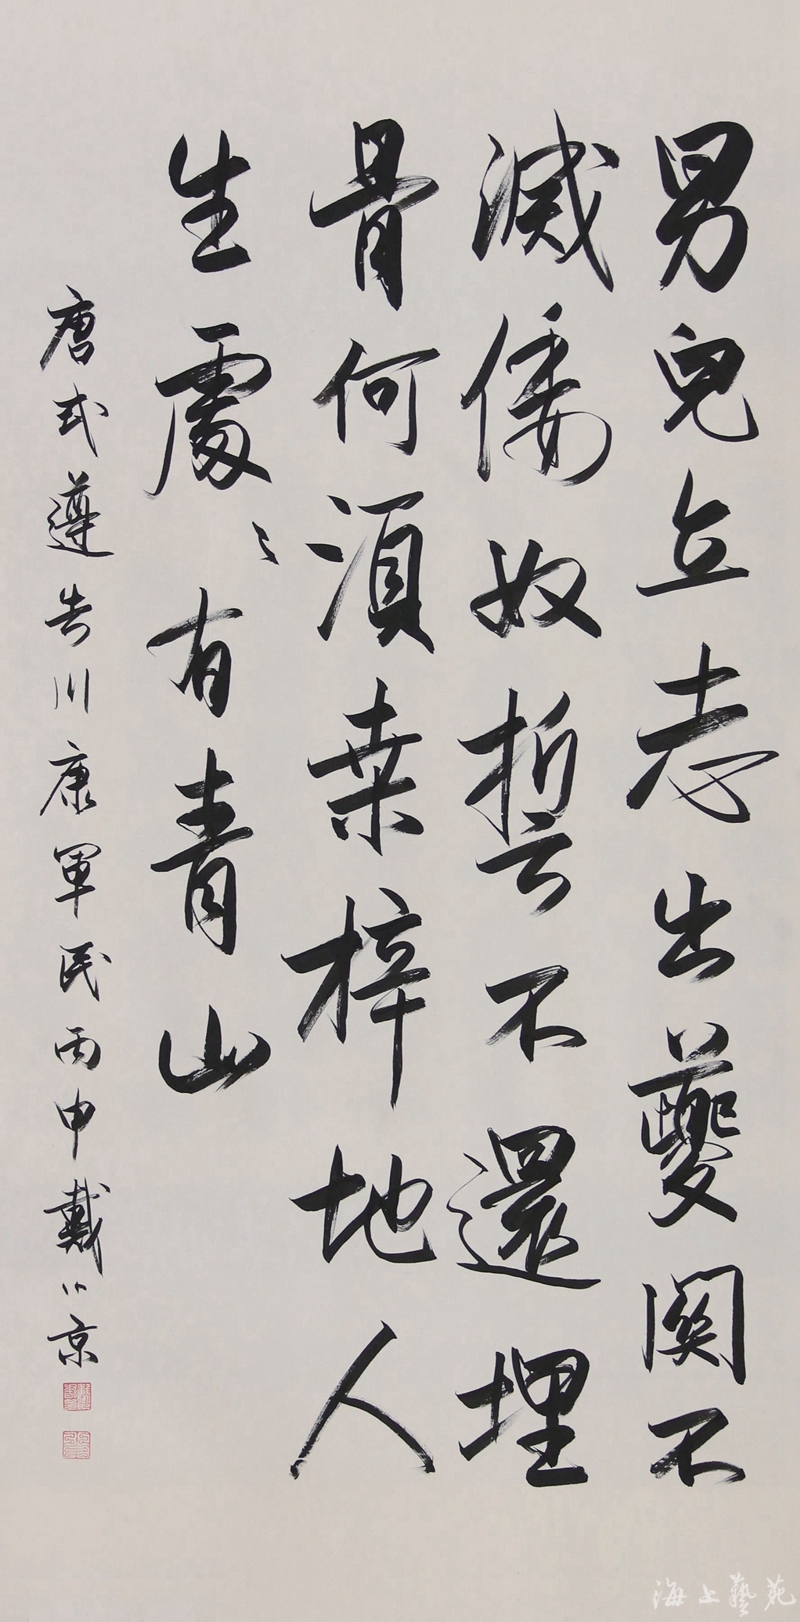 男兒立志出夔関不
滅倭奴誓不還埋
骨何須桒梓地人
生處〻有青山
唐式遵告川康軍民丙申戴小京
海上藝苑